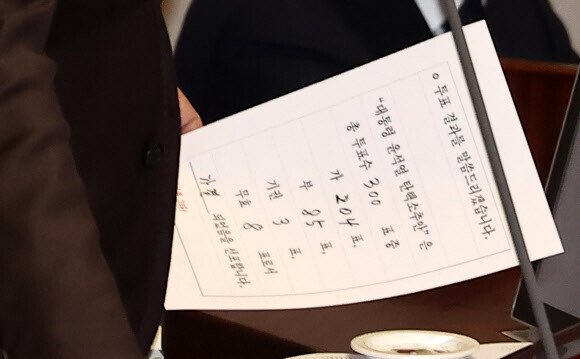 ○ 투표 결과를 말씀드리겠습니다.
"대통령 윤석열 탄핵소추안" 은
총 투표수 300 표 중
가 204 표,
부 85 표,
기권 3 표,
무효 8 표로서
가결 되었음을 선포합니다.